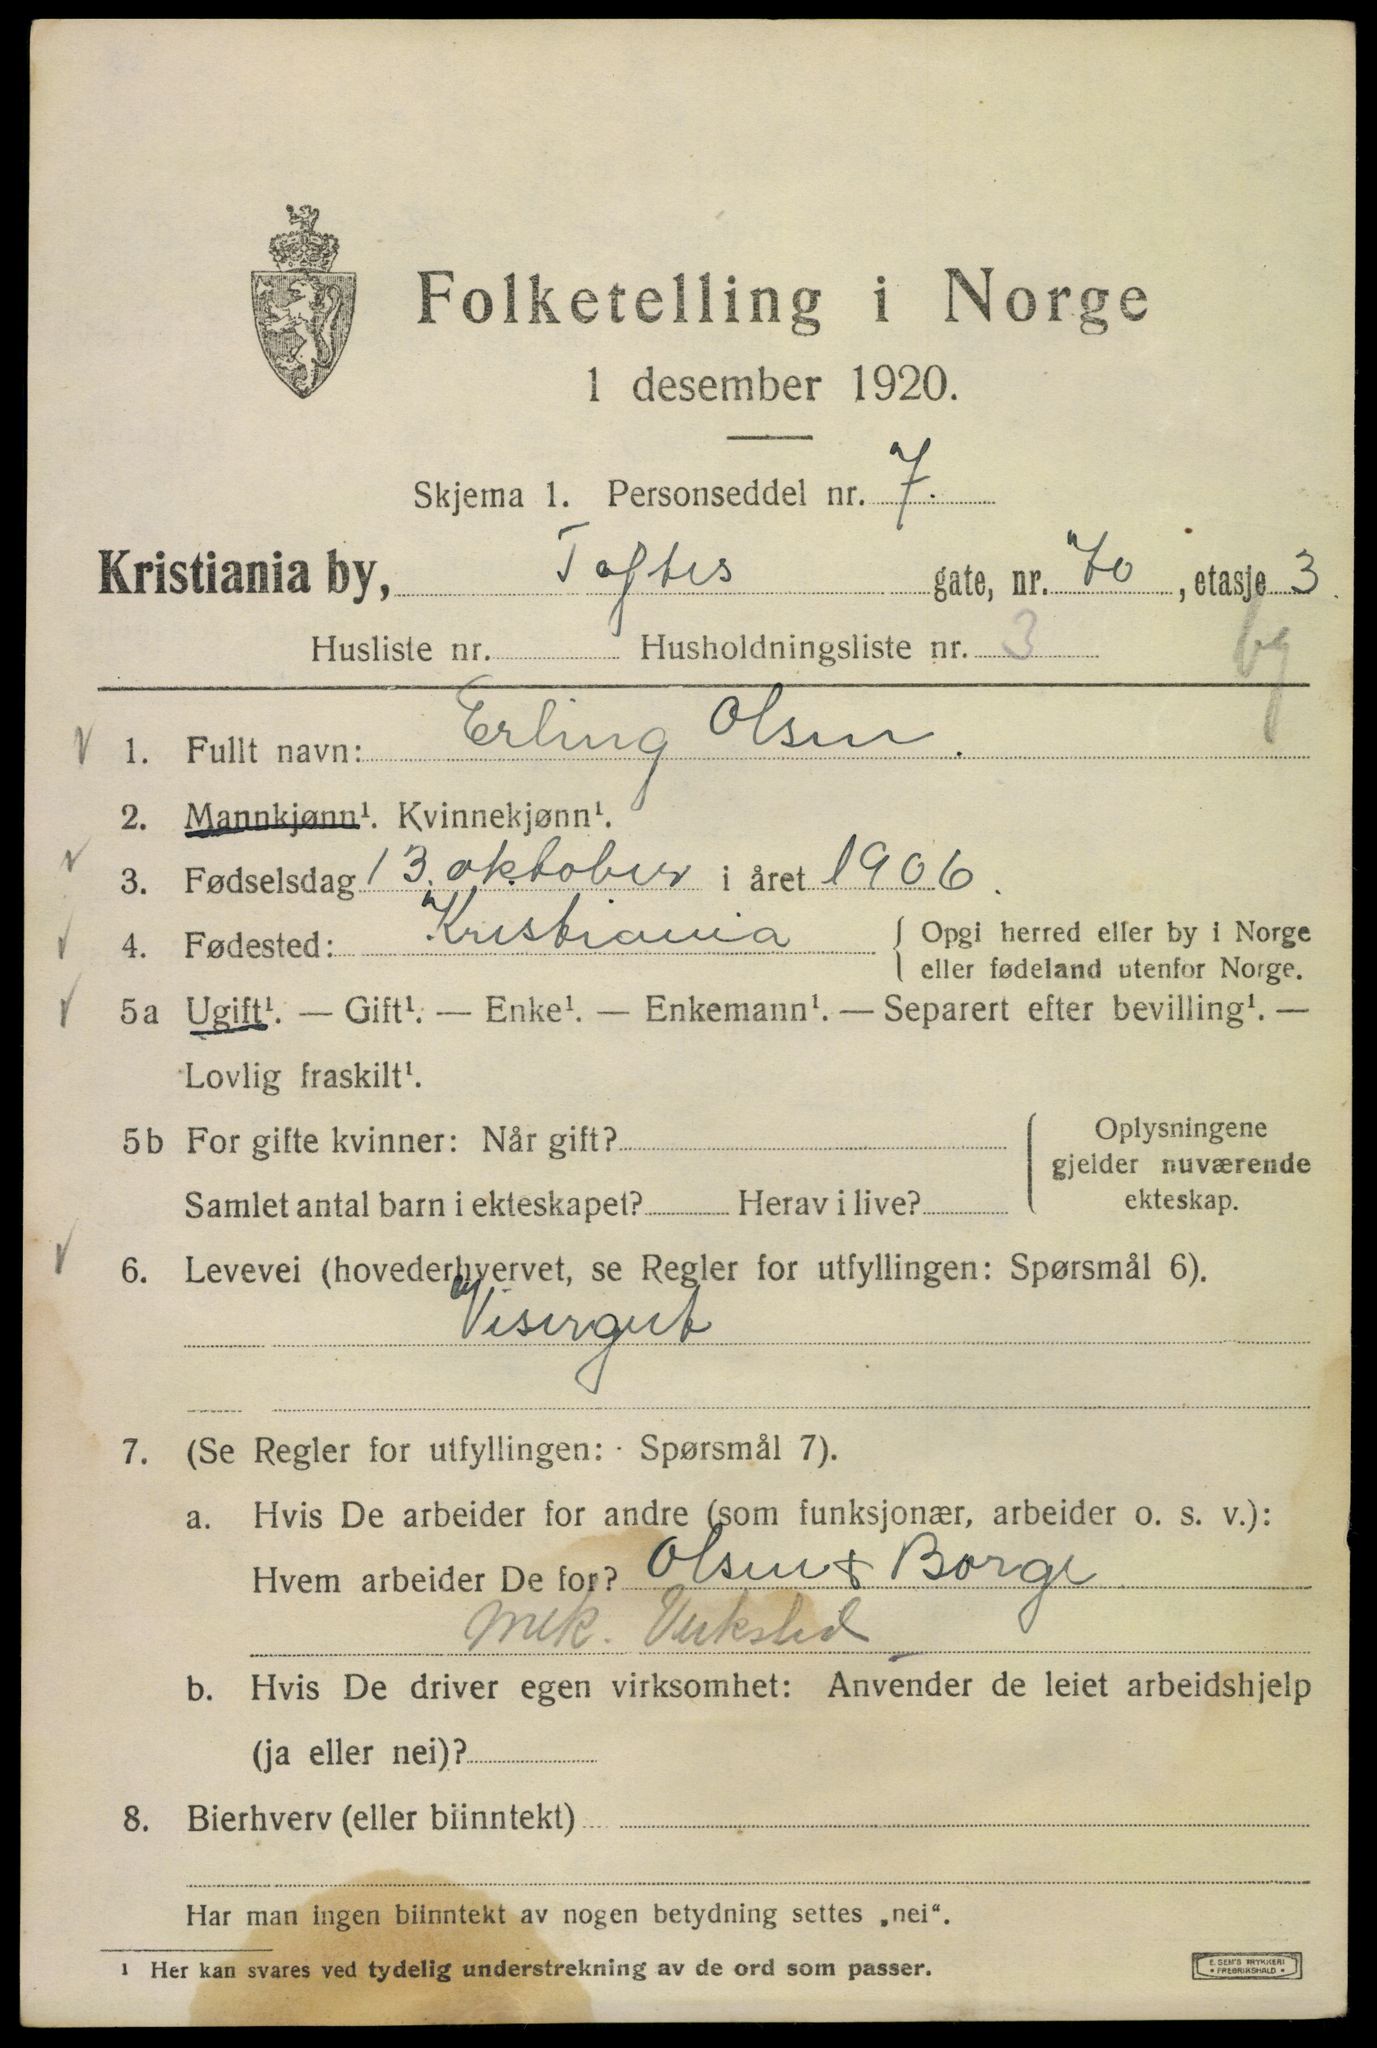 Folketelling i Norge
1 desember 1920.
Skjema 1. Personseddel nr. 7.
Kristiania by, Toftes gate, nr. 70, etasje 3.
Husliste nr. Husholdningsliste nr. 3
1. Fullt navn: Erling Olsen.
2. Mannkjønn¹. Kvinnekjønn¹.
3. Fødselsdag 13. oktober i året 1906.
4. Fødested: Kristiania { Opgi herred eller by i Norge
eller fødeland utenfor Norge.
5a Ugift¹. — Gift¹. — Enke¹. — Enkemann¹. — Separert efter bevilling¹. —
Lovlig fraskilt¹.
5b For gifte kvinner: Når gift? { Oplysningene
gjelder nuværende
Samlet antal barn i ekteskapet? Herav i live? ekteskap.
6. Levevei (hovederhvervet, se Regler for utfyllingen: Spørsmål 6).
Visergut
7. (Se Regler for utfyllingen: Spørsmål 7).
a. Hvis De arbeider for andre (som funksjonær, arbeider o. s. v.):
Hvem arbeider De for? Olsen & Borge
Mek. Verksted
b. Hvis De driver egen virksomhet: Anvender de leiet arbeidshjelp
(ja eller nei)?
8. Bierhverv (eller biinntekt)
Har man ingen biinntekt av nogen betydning settes „nei".
¹ Her kan svares ved tydelig understrekning av de ord som passer.
E. SEM'S TRYKKERI
• FREDRIKSHALD •